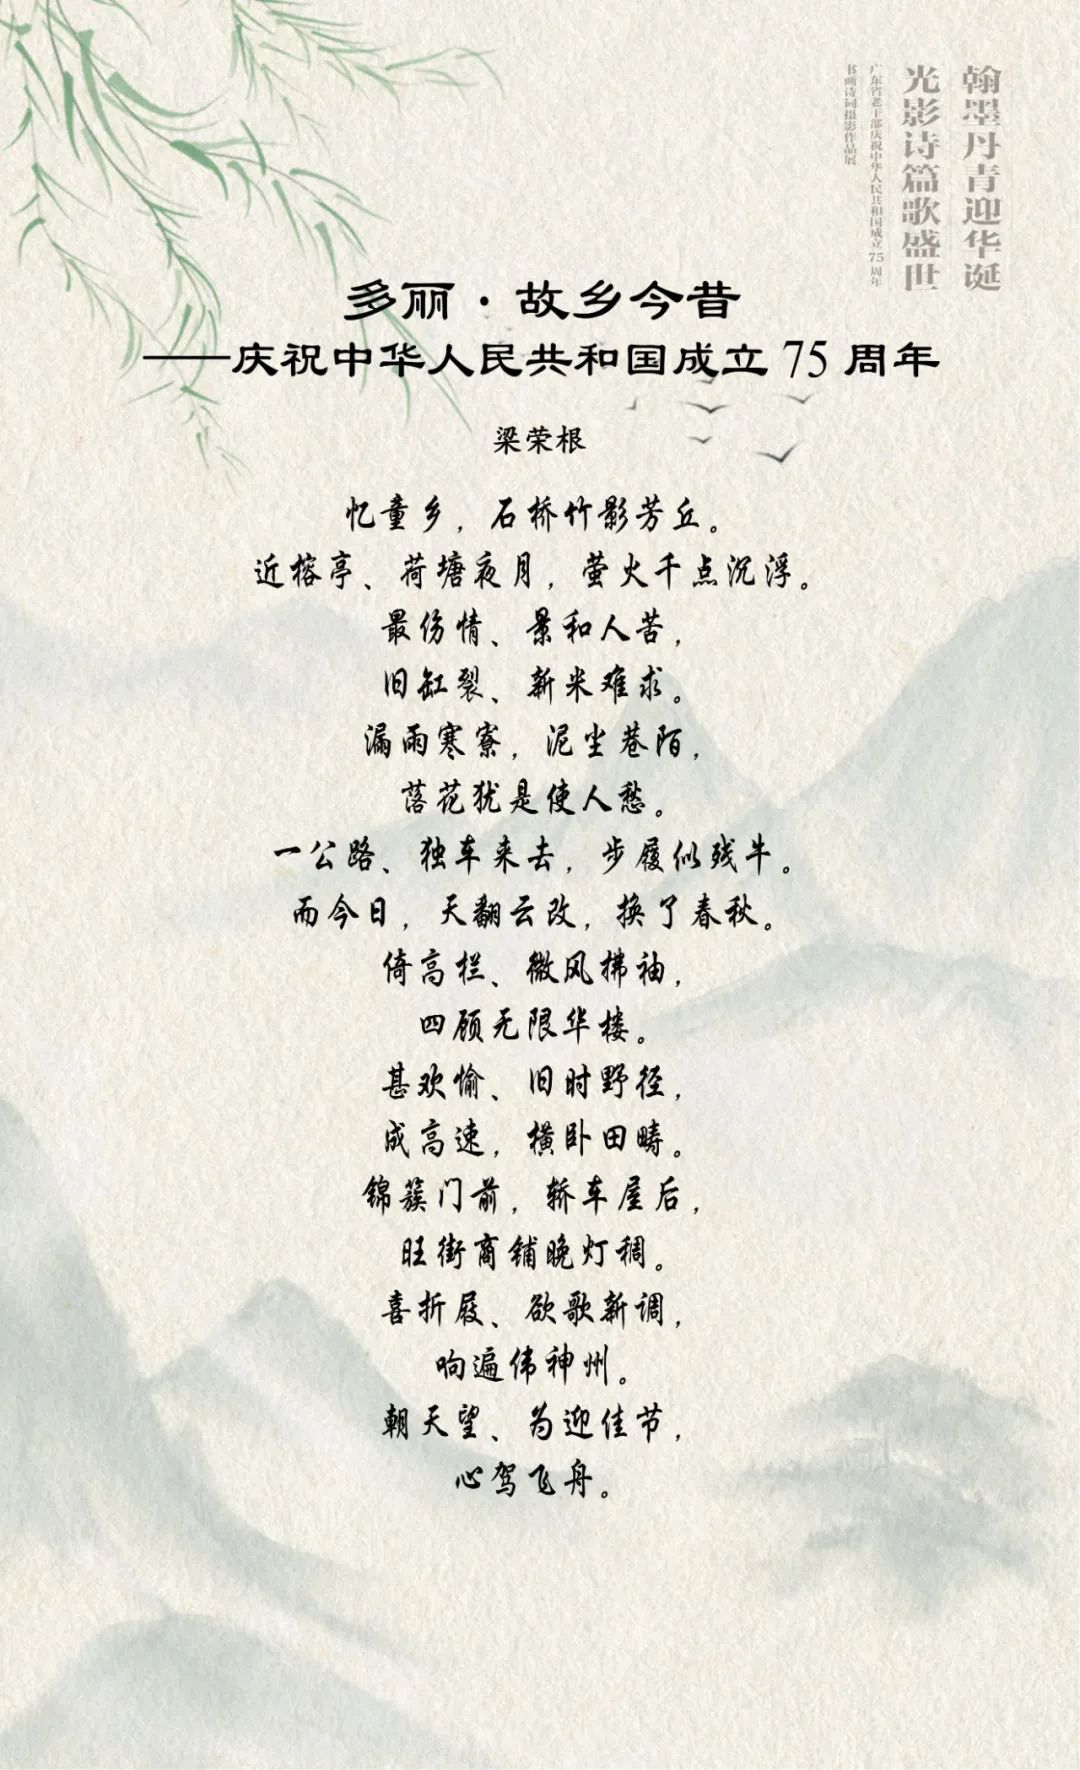 翰墨丹青迎华诞
光影诗篇歌盛世
广东省老干部庆祝中华人民共和国成立75周年
书画诗词摄影作品展
多丽·故乡今昔
——庆祝中华人民共和国成立75周年
梁荣根
忆童乡，石桥竹影芳丘。
近榕亭、荷塘夜月，萤火千点沉浮。
最伤情、景和人苦，
旧缸裂、新米难求。
漏雨寒寮，泥尘巷陌，
落花犹是使人愁。
一公路、独车来去，步履似残牛。
而今日，天翻云改，换了春秋。
倚高栏、微风拂袖，
四顾无限华楼。
甚欢愉、旧时野径，
成高速，横卧田畴。
锦簇门前，轿车屋后，
旺街商铺晚灯稠。
喜折屐、欲歌新调，
响遍伟神州。
朝天望、为迎佳节，
心驾飞舟。